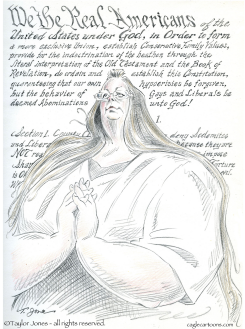 We the Real Americans of the
United States under God, in Order to form
a more exclusive Union, establish Conservative Family Values,
provide for the Indoctrination of the heathen through the
literal interpretation of the Old Testament and the Book of
Revelation, do ordain and establish this Constitution,
guaranteeing that our own hypocrisies be forgiven,
but the behavior of Gays and Liberals be
deemed Abominations unto God!
I.
Section 1.
deny Sodomites
and
they are
NOT
impose
©Taylor Jones - all rights reserved.
caglecartoons.com